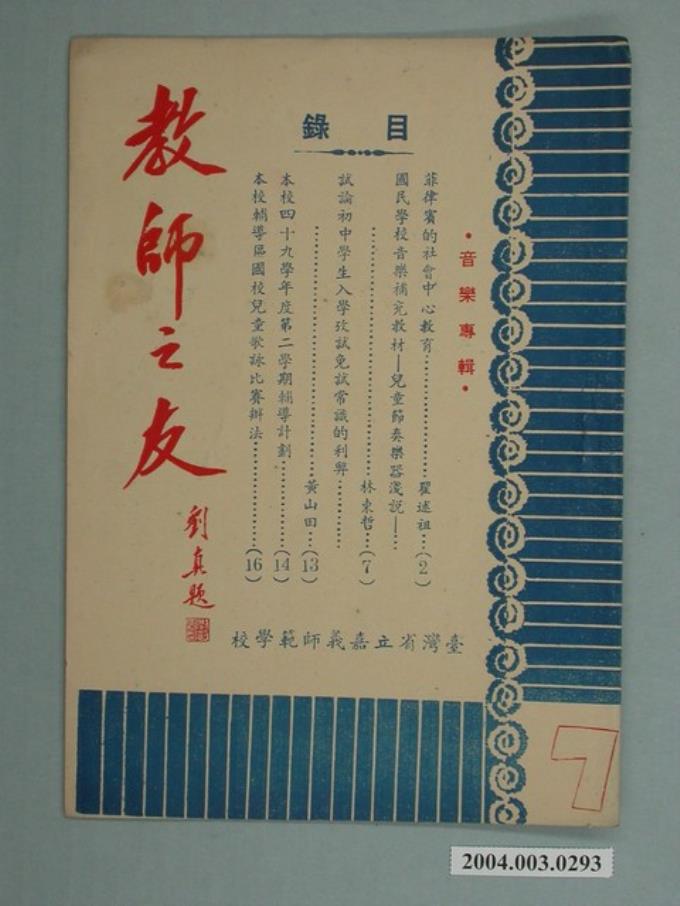 教師之友
劉真題
目錄
•音樂專輯•
菲律賓的社會中心教育………瞿述祖…(2)
國民學校音樂補充教材—兒童節奏樂器淺說—…
………林東哲…(7)
試論初中學生入學攷試免試常識的利弊………
………黃山田…(13)
本校四十九學年度第二學期輔導計劃………(14)
本校輔導區國校兒童歌詠比賽辦法………(16)
臺灣省立嘉義師範學校
7
2004.003.0293